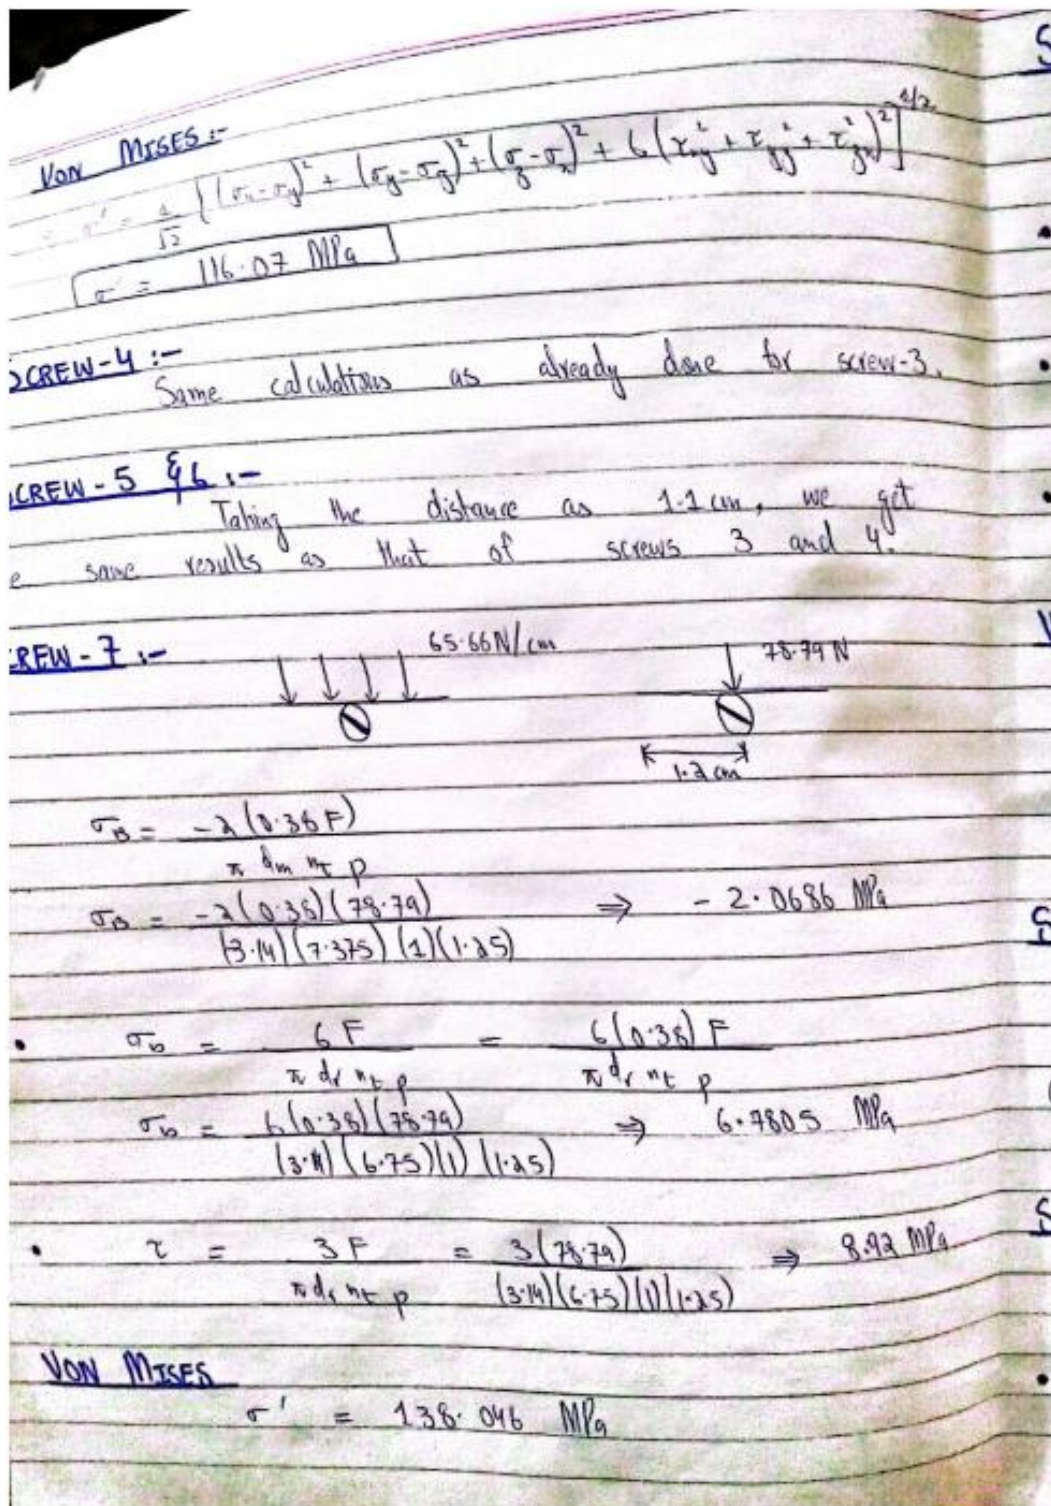 VON MISES :-
= σ' = 1/√2 [(σx - σy)² + (σy - σz)² + (σz - σx)² + 6 (τxy² + τyz² + τzx²)²]^1/2
σ' = 116.07 MPa
SCREW-4 :-
Same calculations as already done for screw-3.
CREW - 5 & 6 :-
Taking the distance as 1.1 cm, we get
e same results as that of screws 3 and 4.
REW - 7 :-
65.66 N/cm 78.79 N
1.2 cm
σB = -2(0.38 F) / π dm nt p
σB = -2(0.38)(78.79) / (3.14)(7.375)(1)(1.25) ⇒ -2.0686 MPa
• σb = 6 F / π dr nt p = 6(0.38) F / π dr nt p
σb = 6(0.38)(78.79) / (3.14)(6.75)(1)(1.25) ⇒ 6.7805 MPa
• τ = 3 F / π dr nt p = 3(78.79) / (3.14)(6.75)(1)(1.25) ⇒ 8.92 MPa
VON MISES
σ' = 138.046 MPa